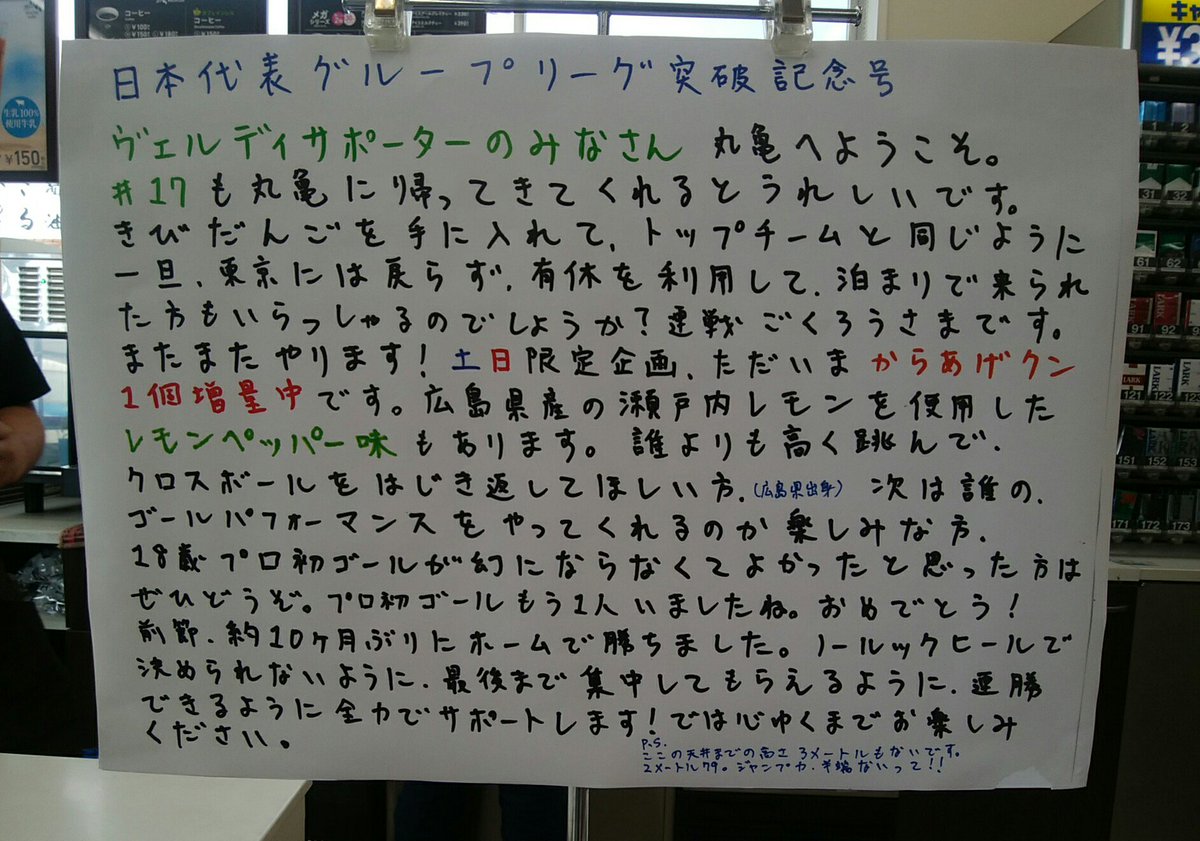 コーヒー
コーヒー
メガ
生乳100%
使用牛乳
¥150
日本代表グループリーグ突破記念号
ヴェルディサポーターのみなさん 丸亀へようこそ。
#17も丸亀に帰ってきてくれるとうれしいです。
きびだんごを手に入れて、トップチームと同じように
一旦、東京には戻らず、有休を利用して、泊まりで来られ
た方もいらっしゃるのでしょうか?連戦ごくろうさまです。
またまたやります!土日限定企画、ただいまからあげクン
1個増量中です。広島県産の瀬戸内レモンを使用した
レモンペッパー味もあります。誰よりも高く跳んで、
クロスボールをはじき返してほしい方、(広島県出身) 次は誰の、
ゴールパフォーマンスをやってくれるのか楽しみな方、
18歳プロ初ゴールが幻にならなくてよかったと思った方は
ぜひどうぞ。プロ初ゴールもう1人いましたね。おめでとう!
前節、約10ヶ月ぶりにホームで勝ちました。ノールックヒールで
決められないように、最後まで集中してもらえるように、連勝
できるように全力でサポートします!では心ゆくまでお楽しみ
ください。
P.S.
ここの天井までの高さ3メートルもないです。
2メートル79。ジャンプ力、半端ないって!!
1
2
31
32
61
62
91
92
121
122
151
152
153
171
172
173